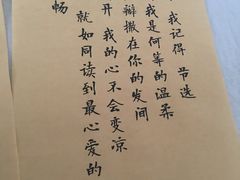 我记得 节选
我是何等的温柔
瓣撒在你的发间
开 我的心不会变凉
就如同读到最心爱的
畅